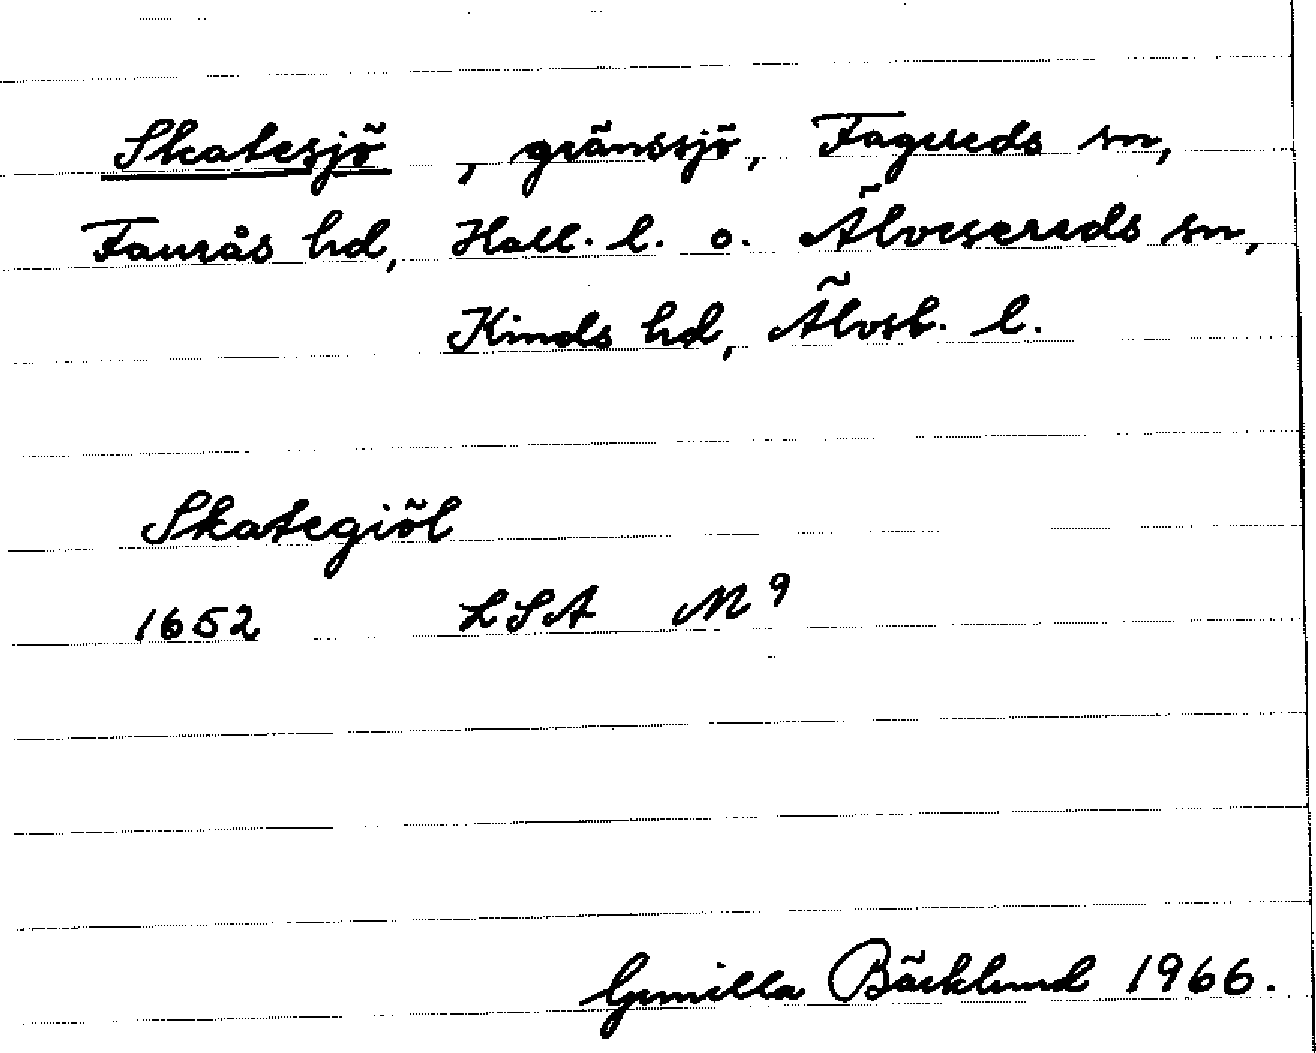 Skatesjö, gränssjö, Fagereds sn,
Faurås hd, Hall. l. o. Älvsereds sn,
Kinds hd, Älvsb. l.
Skategiöl
1652 LSA M9
Gunilla Bäcklund 1966.